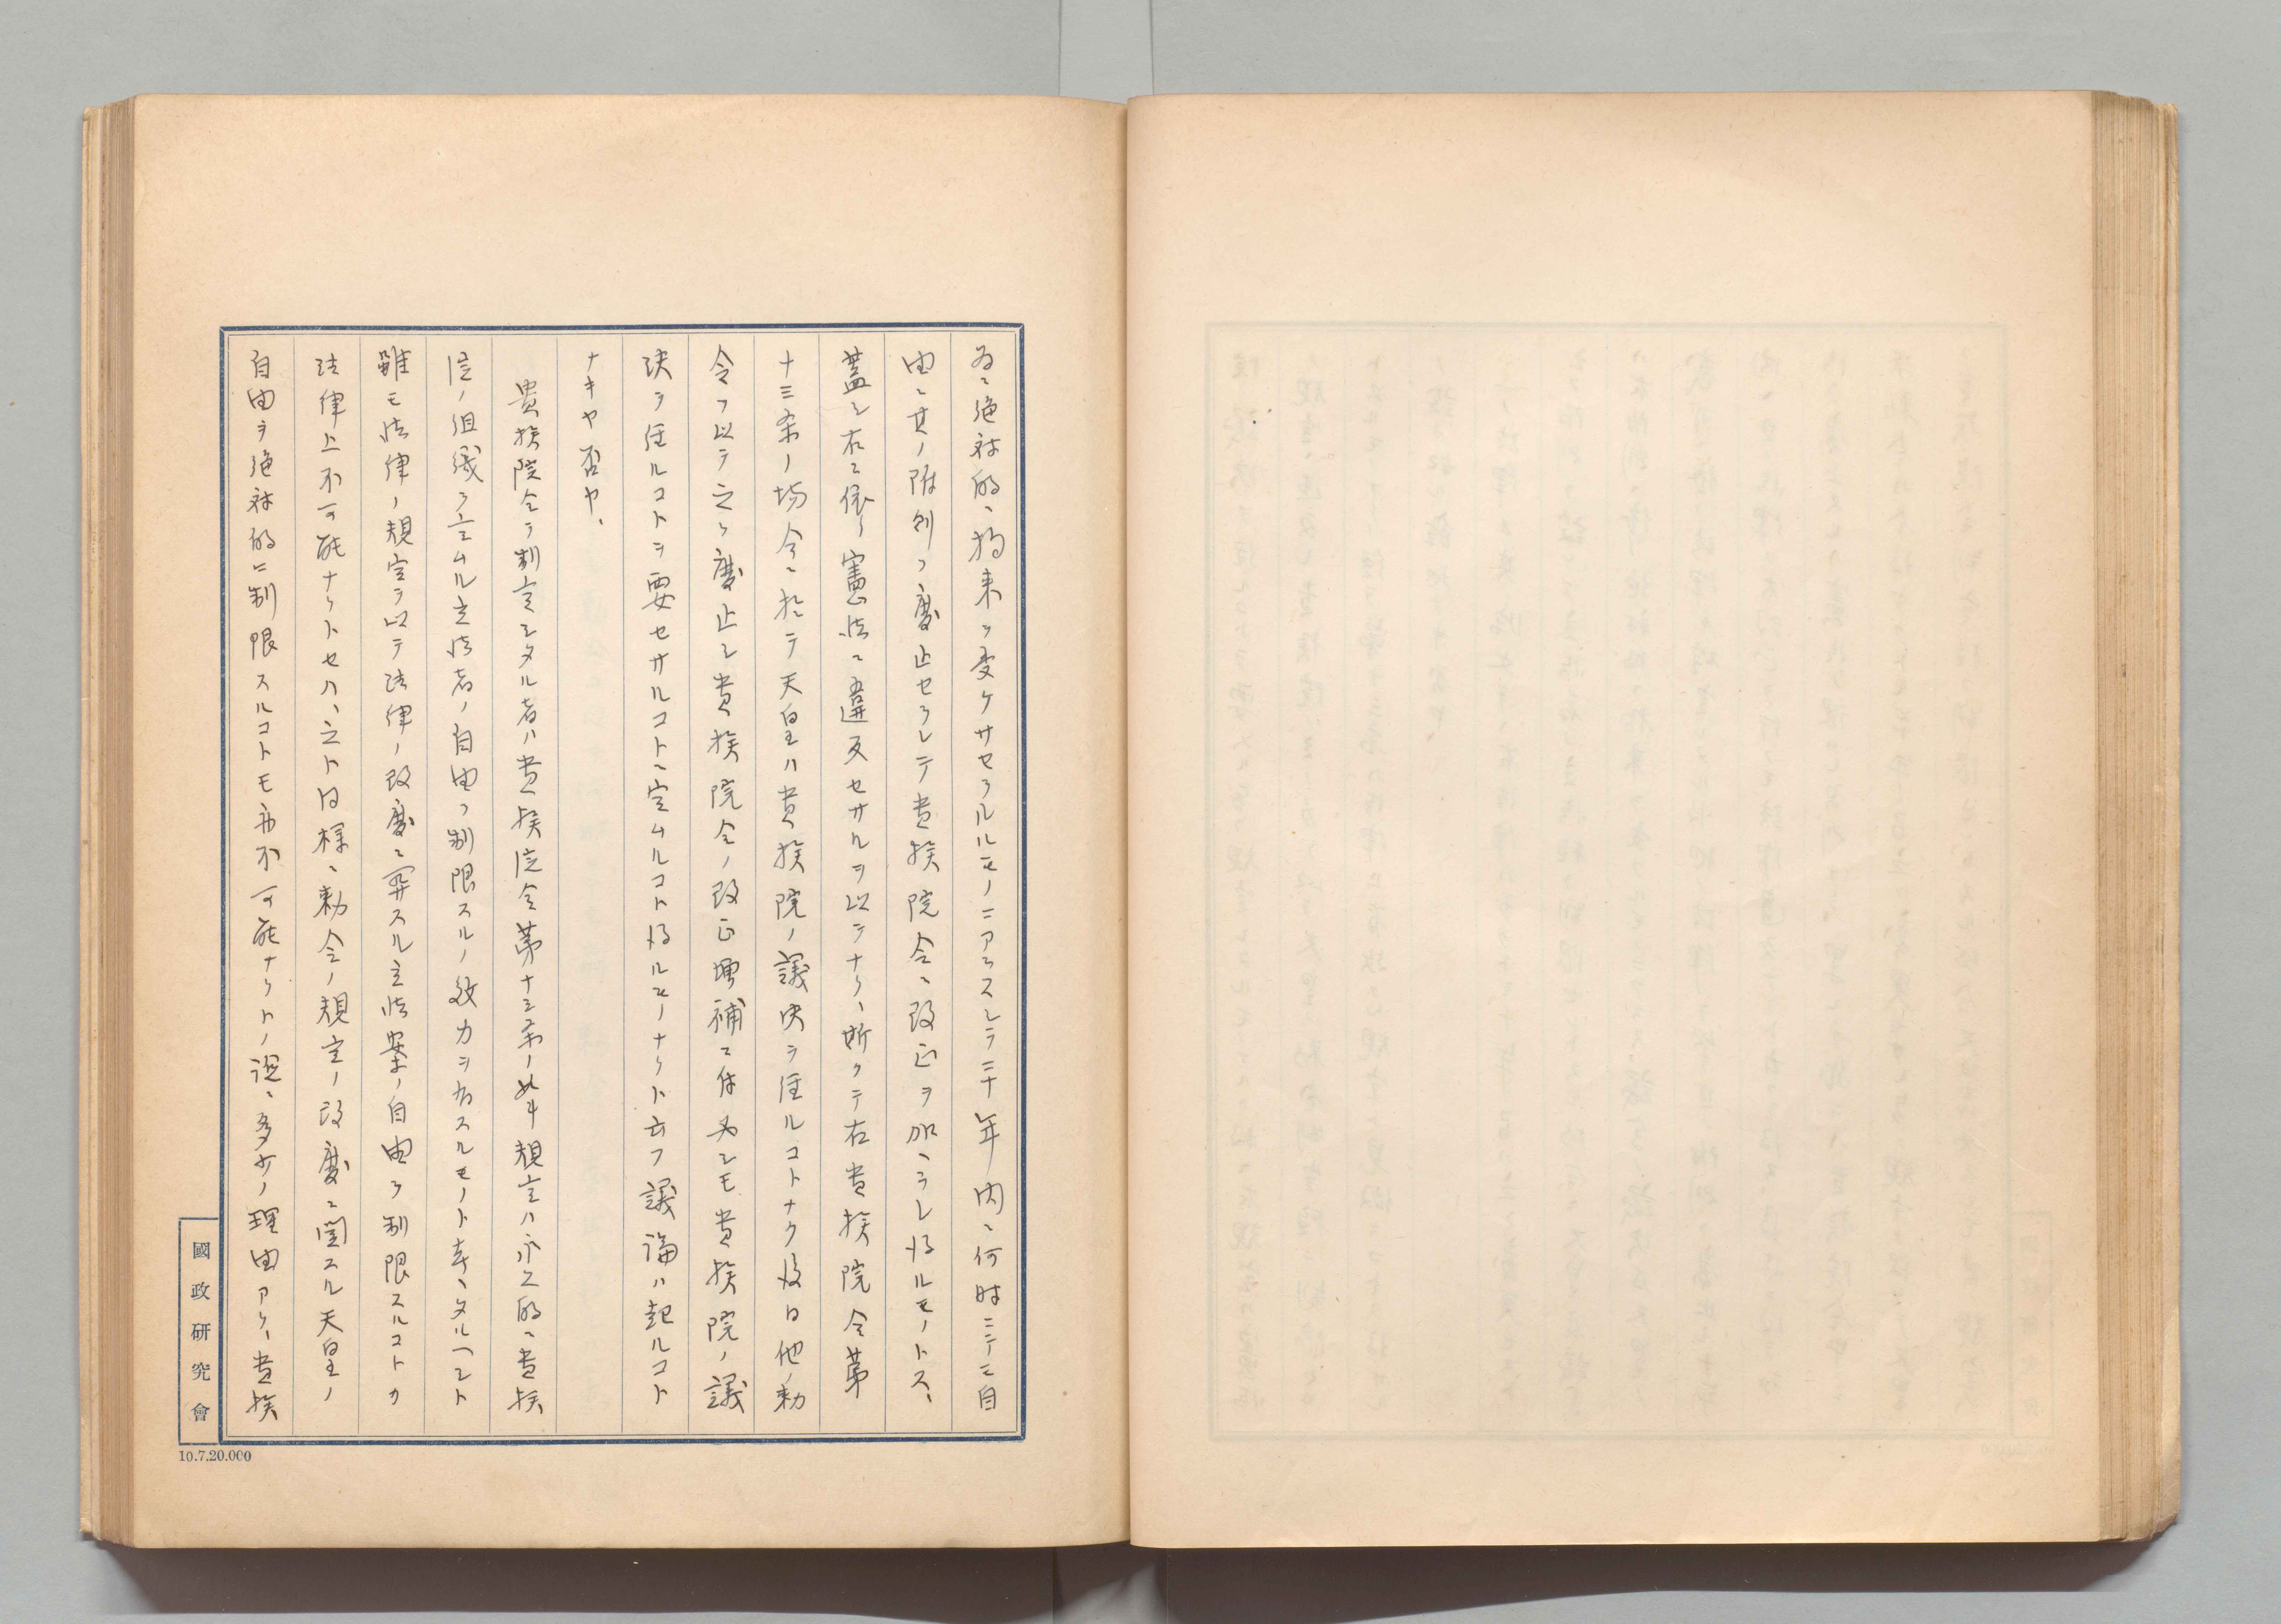 為ニ絶対的ニ拘束ヲ受ケサセラルルモノニアラスシテ二十年内ニ何時ニテモ自
由ニ其ノ附則ヲ廃止セラレテ貴族院令ニ改正ヲ加ヘラレ得ルモノトス、
蓋シ右ニ依リ憲法ニ違反セサルヲ以テナリ、斯クテ右貴族院令第
十三条ノ場合ニ於テ天皇ハ貴族院ノ議決ヲ経ルコトナク後日他ノ勅
令ヲ以テ之ヲ廃止シ貴族院令ノ改正増補ニ付テモ貴族院ノ議
決ヲ経ルコトヲ要セサルコトニ定ムルコト得ルモノナリト云フ議論ハ起ルコト
ナキヤ否ヤ、
貴族院令ヲ制定シタル者ハ貴族院令第十三条ノ如キ規定ハ永久的ニ貴族
院ノ組織ヲ定ムル立法者ノ自由ヲ制限スルノ効力ヲ有スルモノト考ヘタルヘシト
雖モ法律ノ規定ヲ以テ法律ノ改廃ニ関スル立法案ノ自由ヲ制限スルコトカ
法律上不可能ナリトセハ、之ト同様ニ勅令ノ規定ノ改廃ニ関スル天皇ノ
自由ヲ絶対的ニ制限スルコトモ亦不可能ナリトノ説ニ多少ノ理由アリ、貴族
國政研究會
10.7.20.000